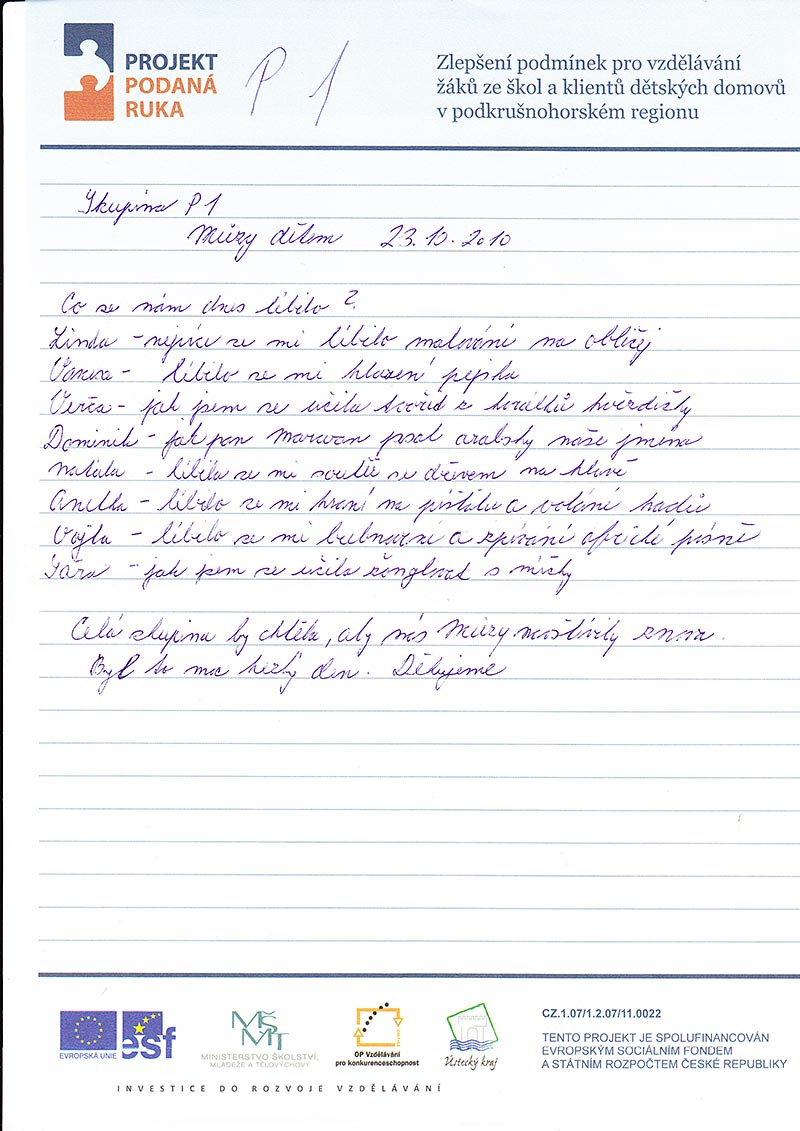 PROJEKT
PODANÁ
RUKA
P 1
Zlepšení podmínek pro vzdělávání
žáků ze škol a klientů dětských domovů
v podkrušnohorském regionu
Skupina P1
Múzy dětem 23.10.2010
Co se nám dnes líbilo?
Linda - nejvíce se mi líbilo malování na obličej
- líbilo se mi hlazení pejska
Verča - jak jsem se učila tvořit z korálků hvězdičky
Dominik - jak pan Marwan psal arabsky naše jména
Natála - líbila se mi soutěž se dřevem na hlavě
Anetka - líbilo se mi hraní na píšťalu a volání hadů
Vojta - líbilo se mi bubnování a zpívání africké písně
Sára - jak jsem se učila žonglovat s míčky
Celá skupina by chtěla, aby nás Múzy navštívily znova.
Byl to moc hezký den. Děkujeme
EVROPSKÁ UNIE
esf
MŠMT
MINISTERSTVO ŠKOLSTVÍ,
MLÁDEŽE A TĚLOVÝCHOVY
OP Vzdělávání
pro konkurenceschopnost
Ústecký kraj
CZ.1.07/1.2.07/11.0022
TENTO PROJEKT JE SPOLUFINANCOVÁN
EVROPSKÝM SOCIÁLNÍM FONDEM
A STÁTNÍM ROZPOČTEM ČESKÉ REPUBLIKY
INVESTICE DO ROZVOJE VZDĚLÁVÁNÍ